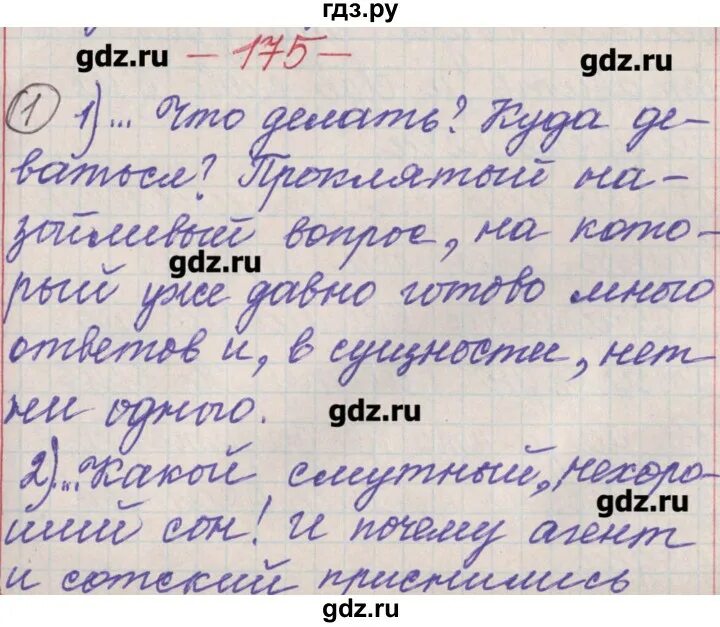 гдз.ру
gdz.ru — 175 — gdz.ru
① 1)... Что делать? Куда де-
ваться? Проклятый на-
зойливый вопрос, на кото-
gdz.ru
рый уже давно готово много
ответов и, в сущности, нет
ни одного. gdz.ru
2)... Какой смутный, нехоро-
gdz.ru
ший сон! И почему агент
и сотский приснились
gdz.ru